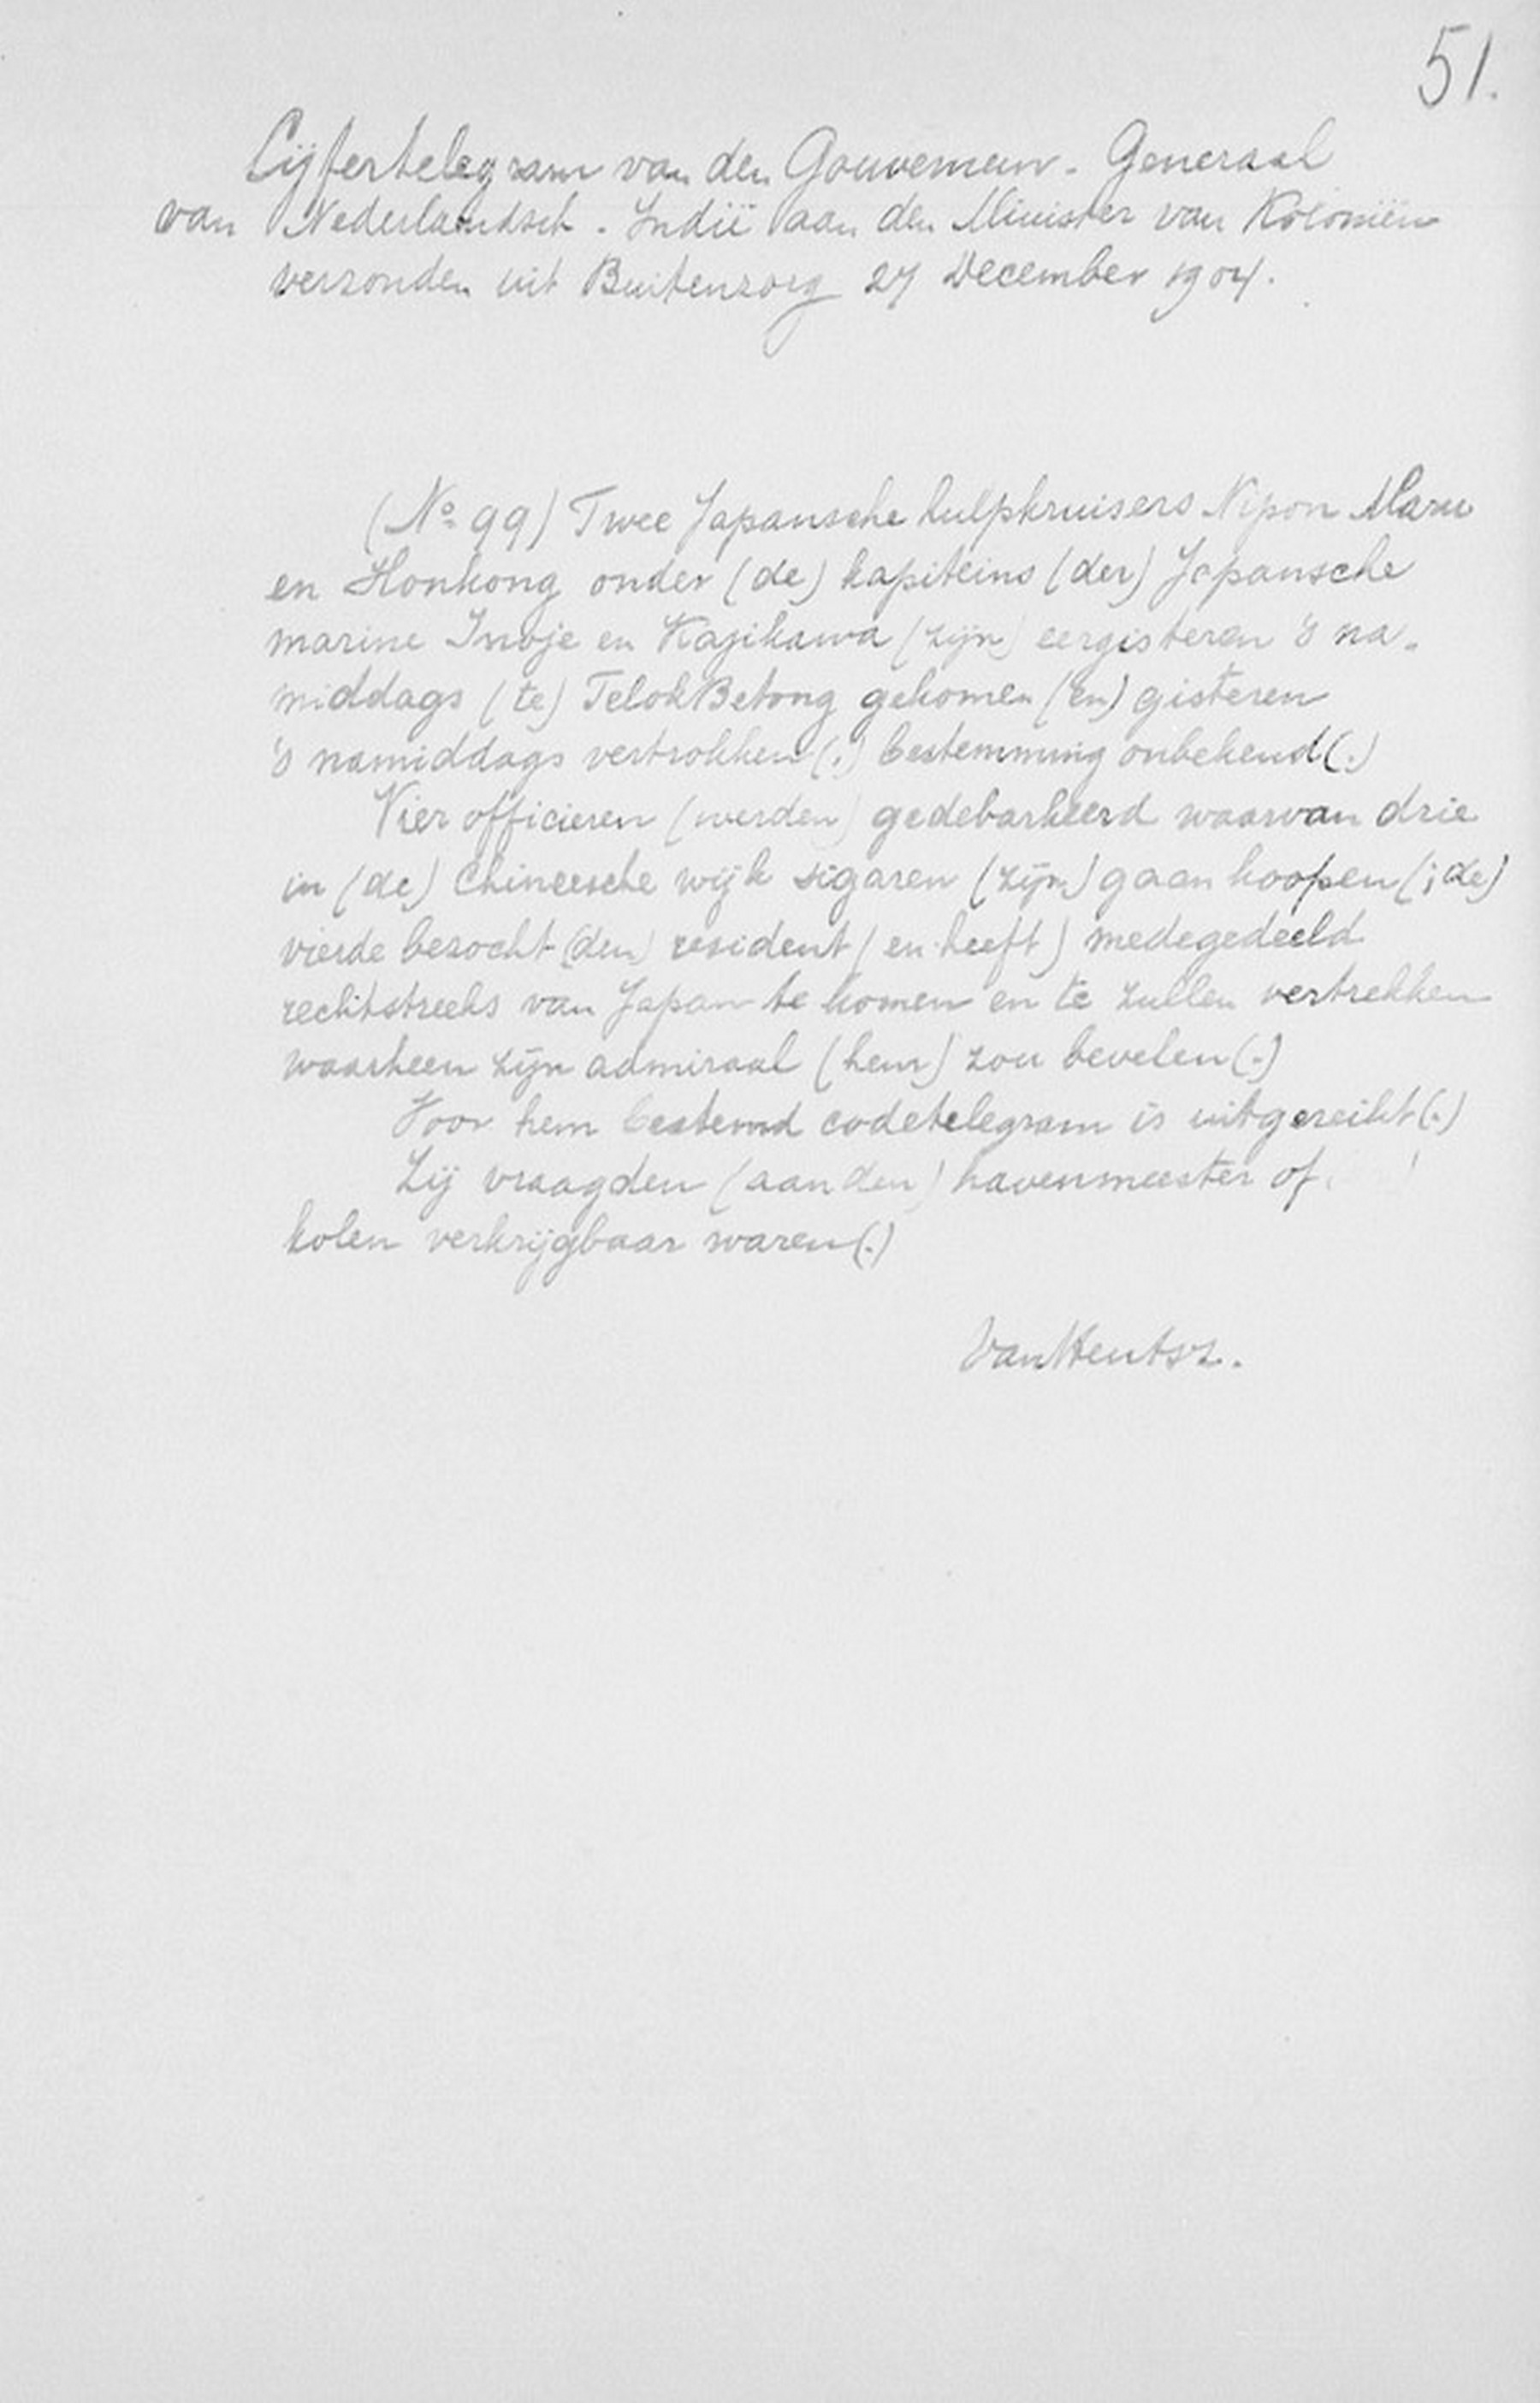 51.
Cijfertelegram van den Gouverneur-Generaal
van Nederlandsch-Indië aan den Minister van Koloniën
verzonden uit Buitenzorg 27 December 1904.
(No. 99) Twee Japansche hulpkruisers Nipon Maru
en Honkong onder (de) kapiteins (der) Japansche
marine Inoje en Kajikawa (zijn) eergisteren 's na-
middags (te) Telok Betong gekomen (en) gisteren
's namiddags vertrokken (.) bestemming onbekend (.)
Vier officieren (werden) gedebarkeerd waarvan drie
in (de) Chineesche wijk sigaren (zijn) gaan koopen (; de)
vierde bezocht (den) resident (en heeft) medegedeeld
rechtstreeks van Japan te komen en te zullen vertrekken
waarheen zijn admiraal (hem) zou bevelen (.)
Voor hem bestemd codetelegram is uitgereikt (.)
Zij vraagden (aan den) havenmeester of
kolen verkrijgbaar waren (.)
Van Heutsz.